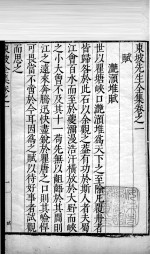 東坡先生全集卷之一
賦
灩澦堆賦
世以瞿唐峽口灩澦堆為天下之至險凡覆舟者
皆歸咎於此石以余觀之蓋有功於斯人者夫蜀
江會百水而至於夔瀰漫浩汗橫放於大野而峽
之大小曾不及其十一苟先無以齟齬於其間則
江之遠來奔騰迅快盡銳於瞿唐之口則其嶮悍
可畏當不啻於今耳因為之賦以待好事者試觀
而思之
東坡全集卷之一